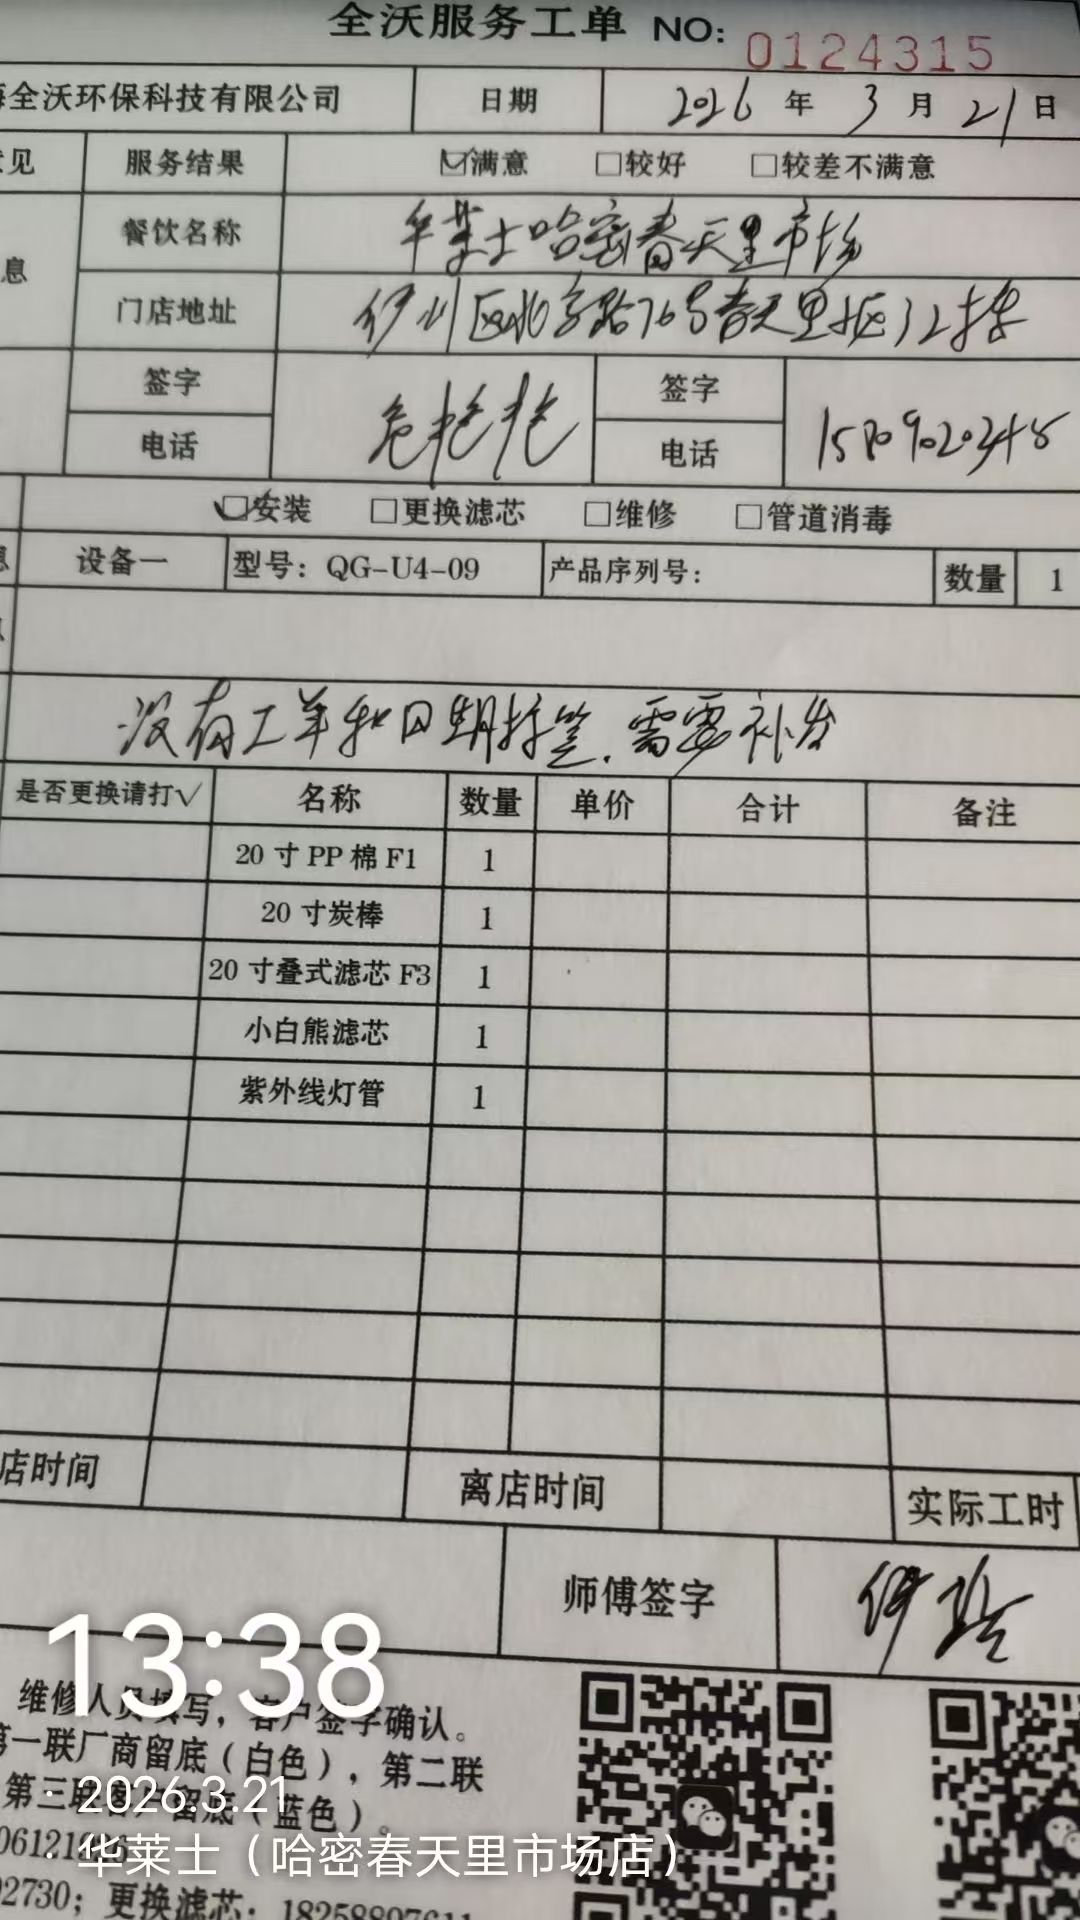 全沃服务工单 NO: 0124315
全沃环保科技有限公司 日期 2026 年 3 月 21 日
见 服务结果 ☑满意 □较好 □较差不满意
息 餐饮名称 华莱士哈密春天里市场
门店地址 伊州区北京路76号春天里 32栋
签字 签字
电话 电话
☑安装 □更换滤芯 □维修 □管道消毒
设备一 型号：QG-U4-09 产品序列号： 数量 1
没有工单和日期 需要补发
是否更换请打√ 名称 数量 单价 合计 备注
20寸PP棉F1 1
20寸炭棒 1
20寸叠式滤芯F3 1
小白熊滤芯 1
紫外线灯管 1
店时间 离店时间 实际工时
师傅签字
13:38
维修人员填写，客户签字确认。
第一联厂商留底（白色），第二联
第三联 留底（蓝色）。
· 2026.3.21
· 华莱士（哈密春天里市场店）
02730；更换滤芯：18258897611